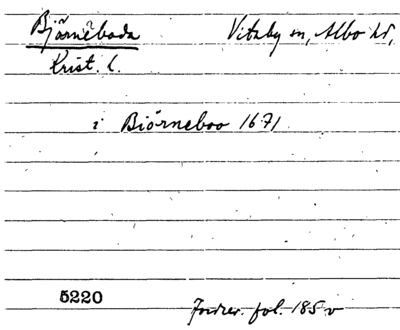 Björnöboda Vitaby sn, Albo hd,
Krist. l.
i Biörneboo 1671
5220 Jordrev. fol. 185 v